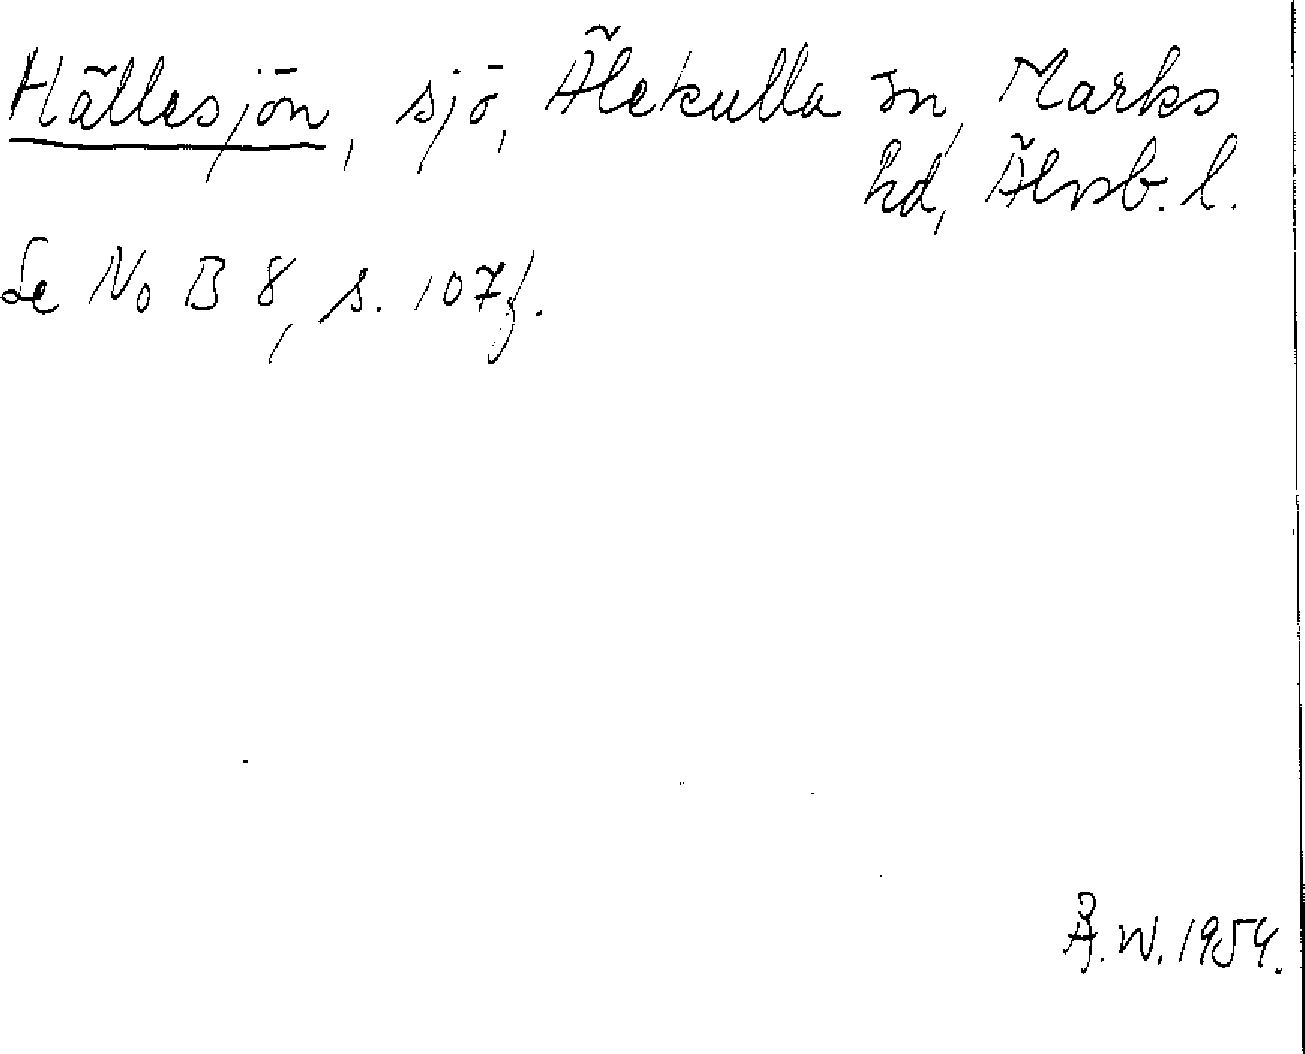 Hällesjön, sjö, Älekulla sn, Marks
hd, Älvsb. l.
Se NoB 8, s. 107f.
Å.W. 1954.